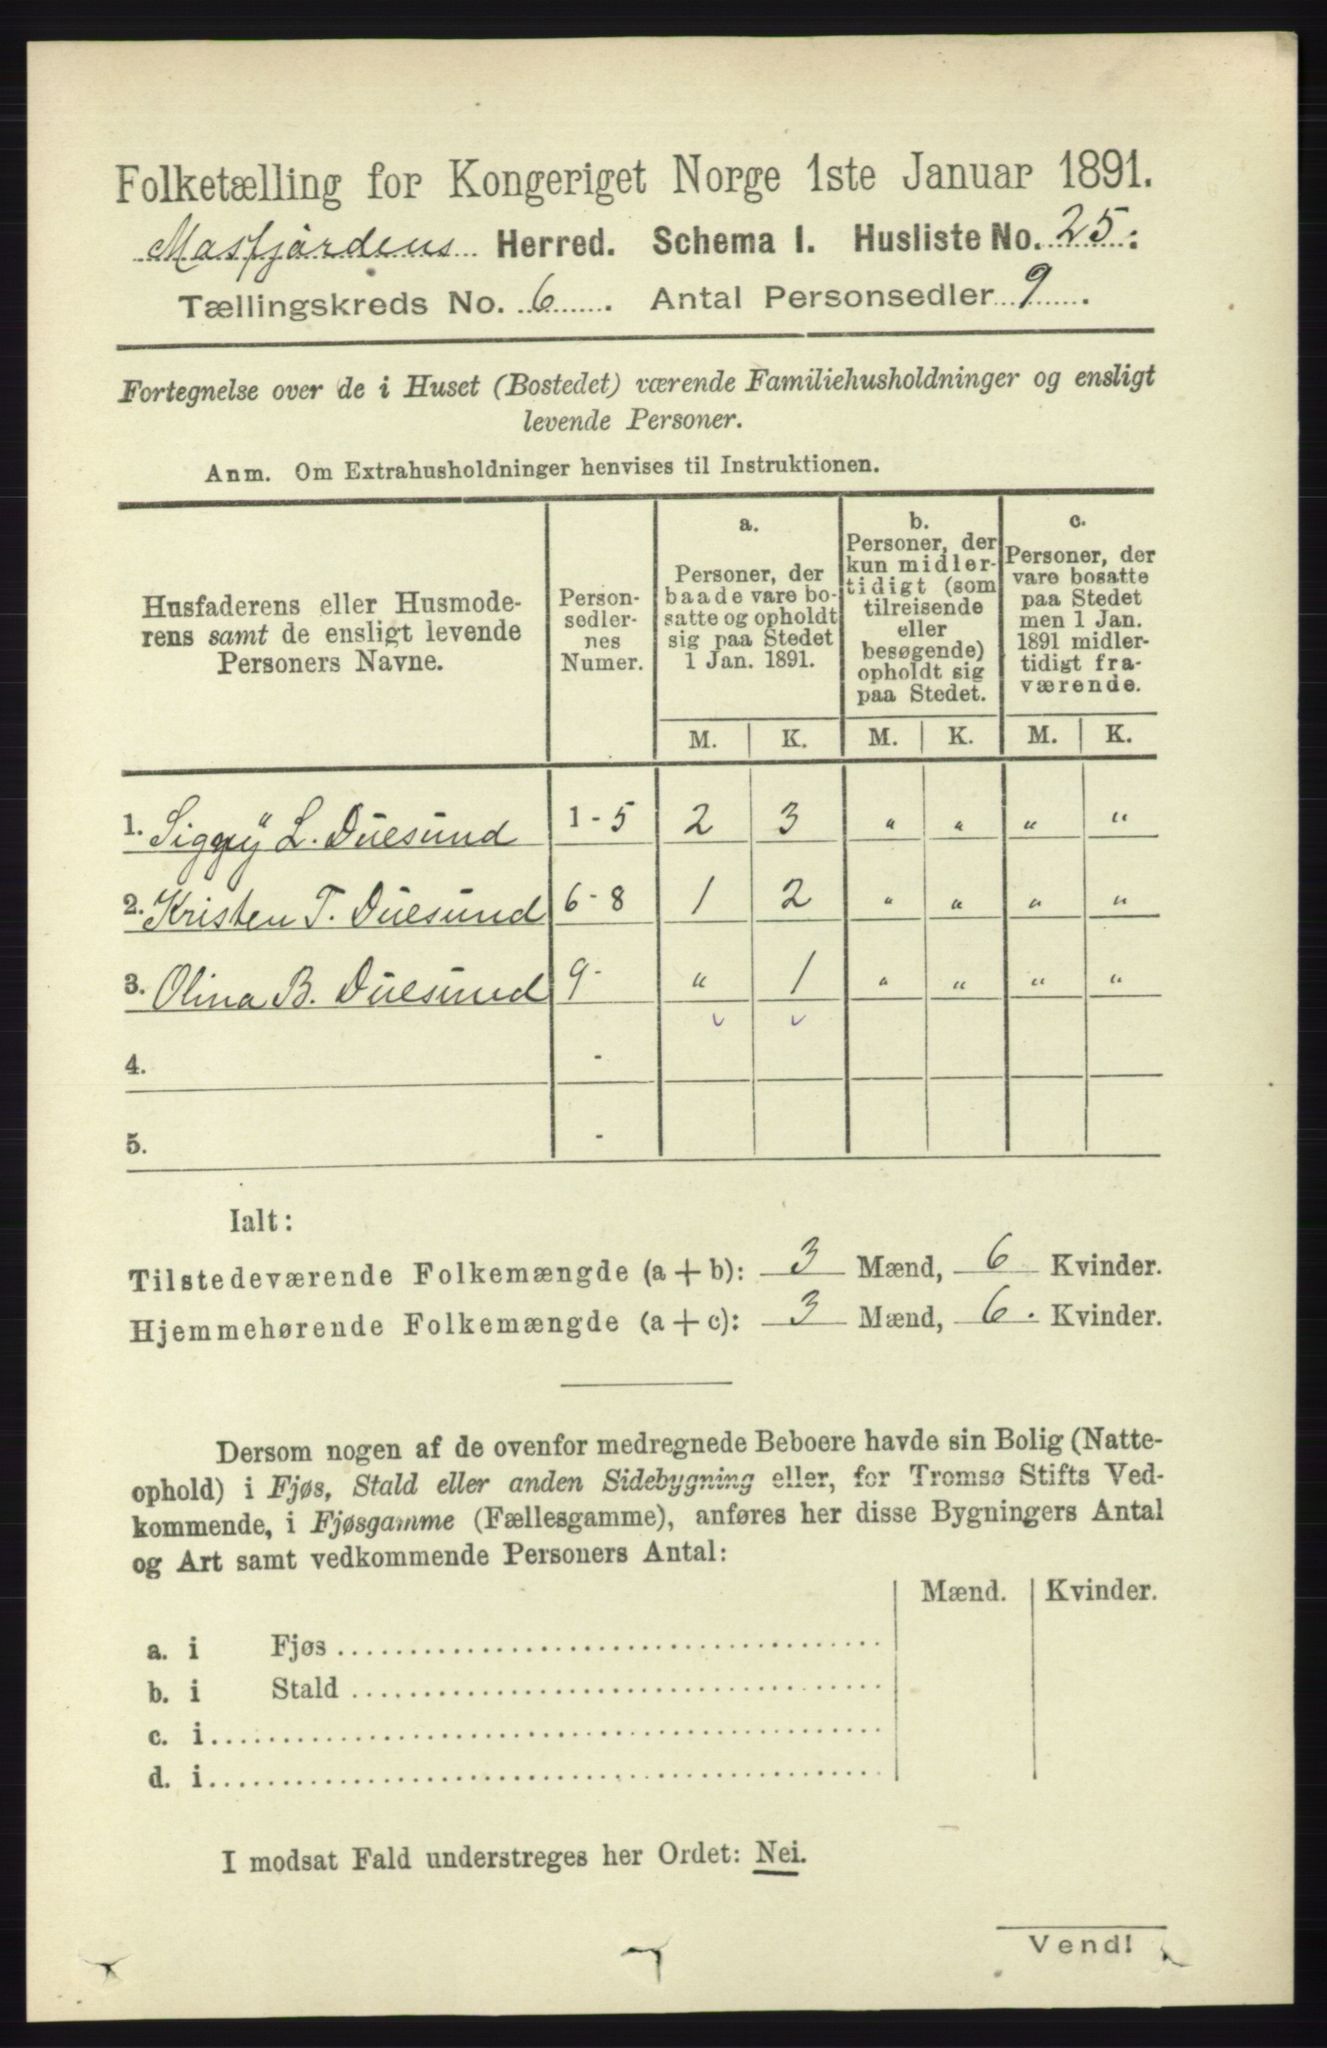 Folketælling for Kongeriget Norge 1ste Januar 1891.
Masfjordens Herred. Schema I. Husliste No. 25.
Tællingskreds No. 6. Antal Personsedler 9.
Fortegnelse over de i Huset (Bostedet) værende Familiehusholdninger og ensligt
levende Personer.
Anm. Om Extrahusholdninger henvises til Instruktionen.
Husfaderens eller Husmode-
rens samt de ensligt levende
Personers Navne.
Person-
sedler-
nes
Numer.
a.
Personer, der
baade vare bo-
satte og opholdt
sig paa Stedet
1 Jan. 1891.
b.
Personer, der
kun midler-
tidigt (som
tilreisende
eller
besøgende)
opholdt sig
paa Stedet.
c.
Personer, der
vare bosatte
paa Stedet
men 1 Jan.
1891 midler-
tidigt fra-
værende.
M. K. M. K. M. K.
1. L. Duesund 1-5 2 3 " " " "
2. Kristen T. Duesund 6-8 1 2 " " " "
3. Olina B. Duesund 9- " 1 " " " "
4. -
5. -
Ialt:
Tilstedeværende Folkemængde (a + b): 3 Mænd, 6 Kvinder.
Hjemmehørende Folkemængde (a + c): 3 Mænd, 6. Kvinder.
Dersom nogen af de ovenfor medregnede Beboere havde sin Bolig (Natte-
ophold) i Fjøs, Stald eller anden Sidebygning eller, for Tromsø Stifts Ved-
kommende, i Fjøsgamme (Fællesgamme), anføres her disse Bygningers Antal
og Art samt vedkommende Personers Antal:
Mænd. Kvinder.
a. i Fjøs
b. i Stald
c. i
d. i
I modsat Fald understreges her Ordet: Nei.
Vend!